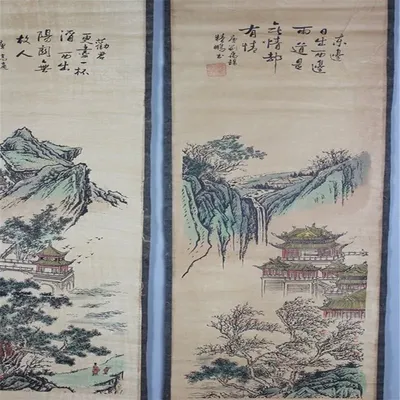 東邊
日出西邊
雨道是
无情却
有情
勸君
更盡一杯
酒西出
陽關無
故人